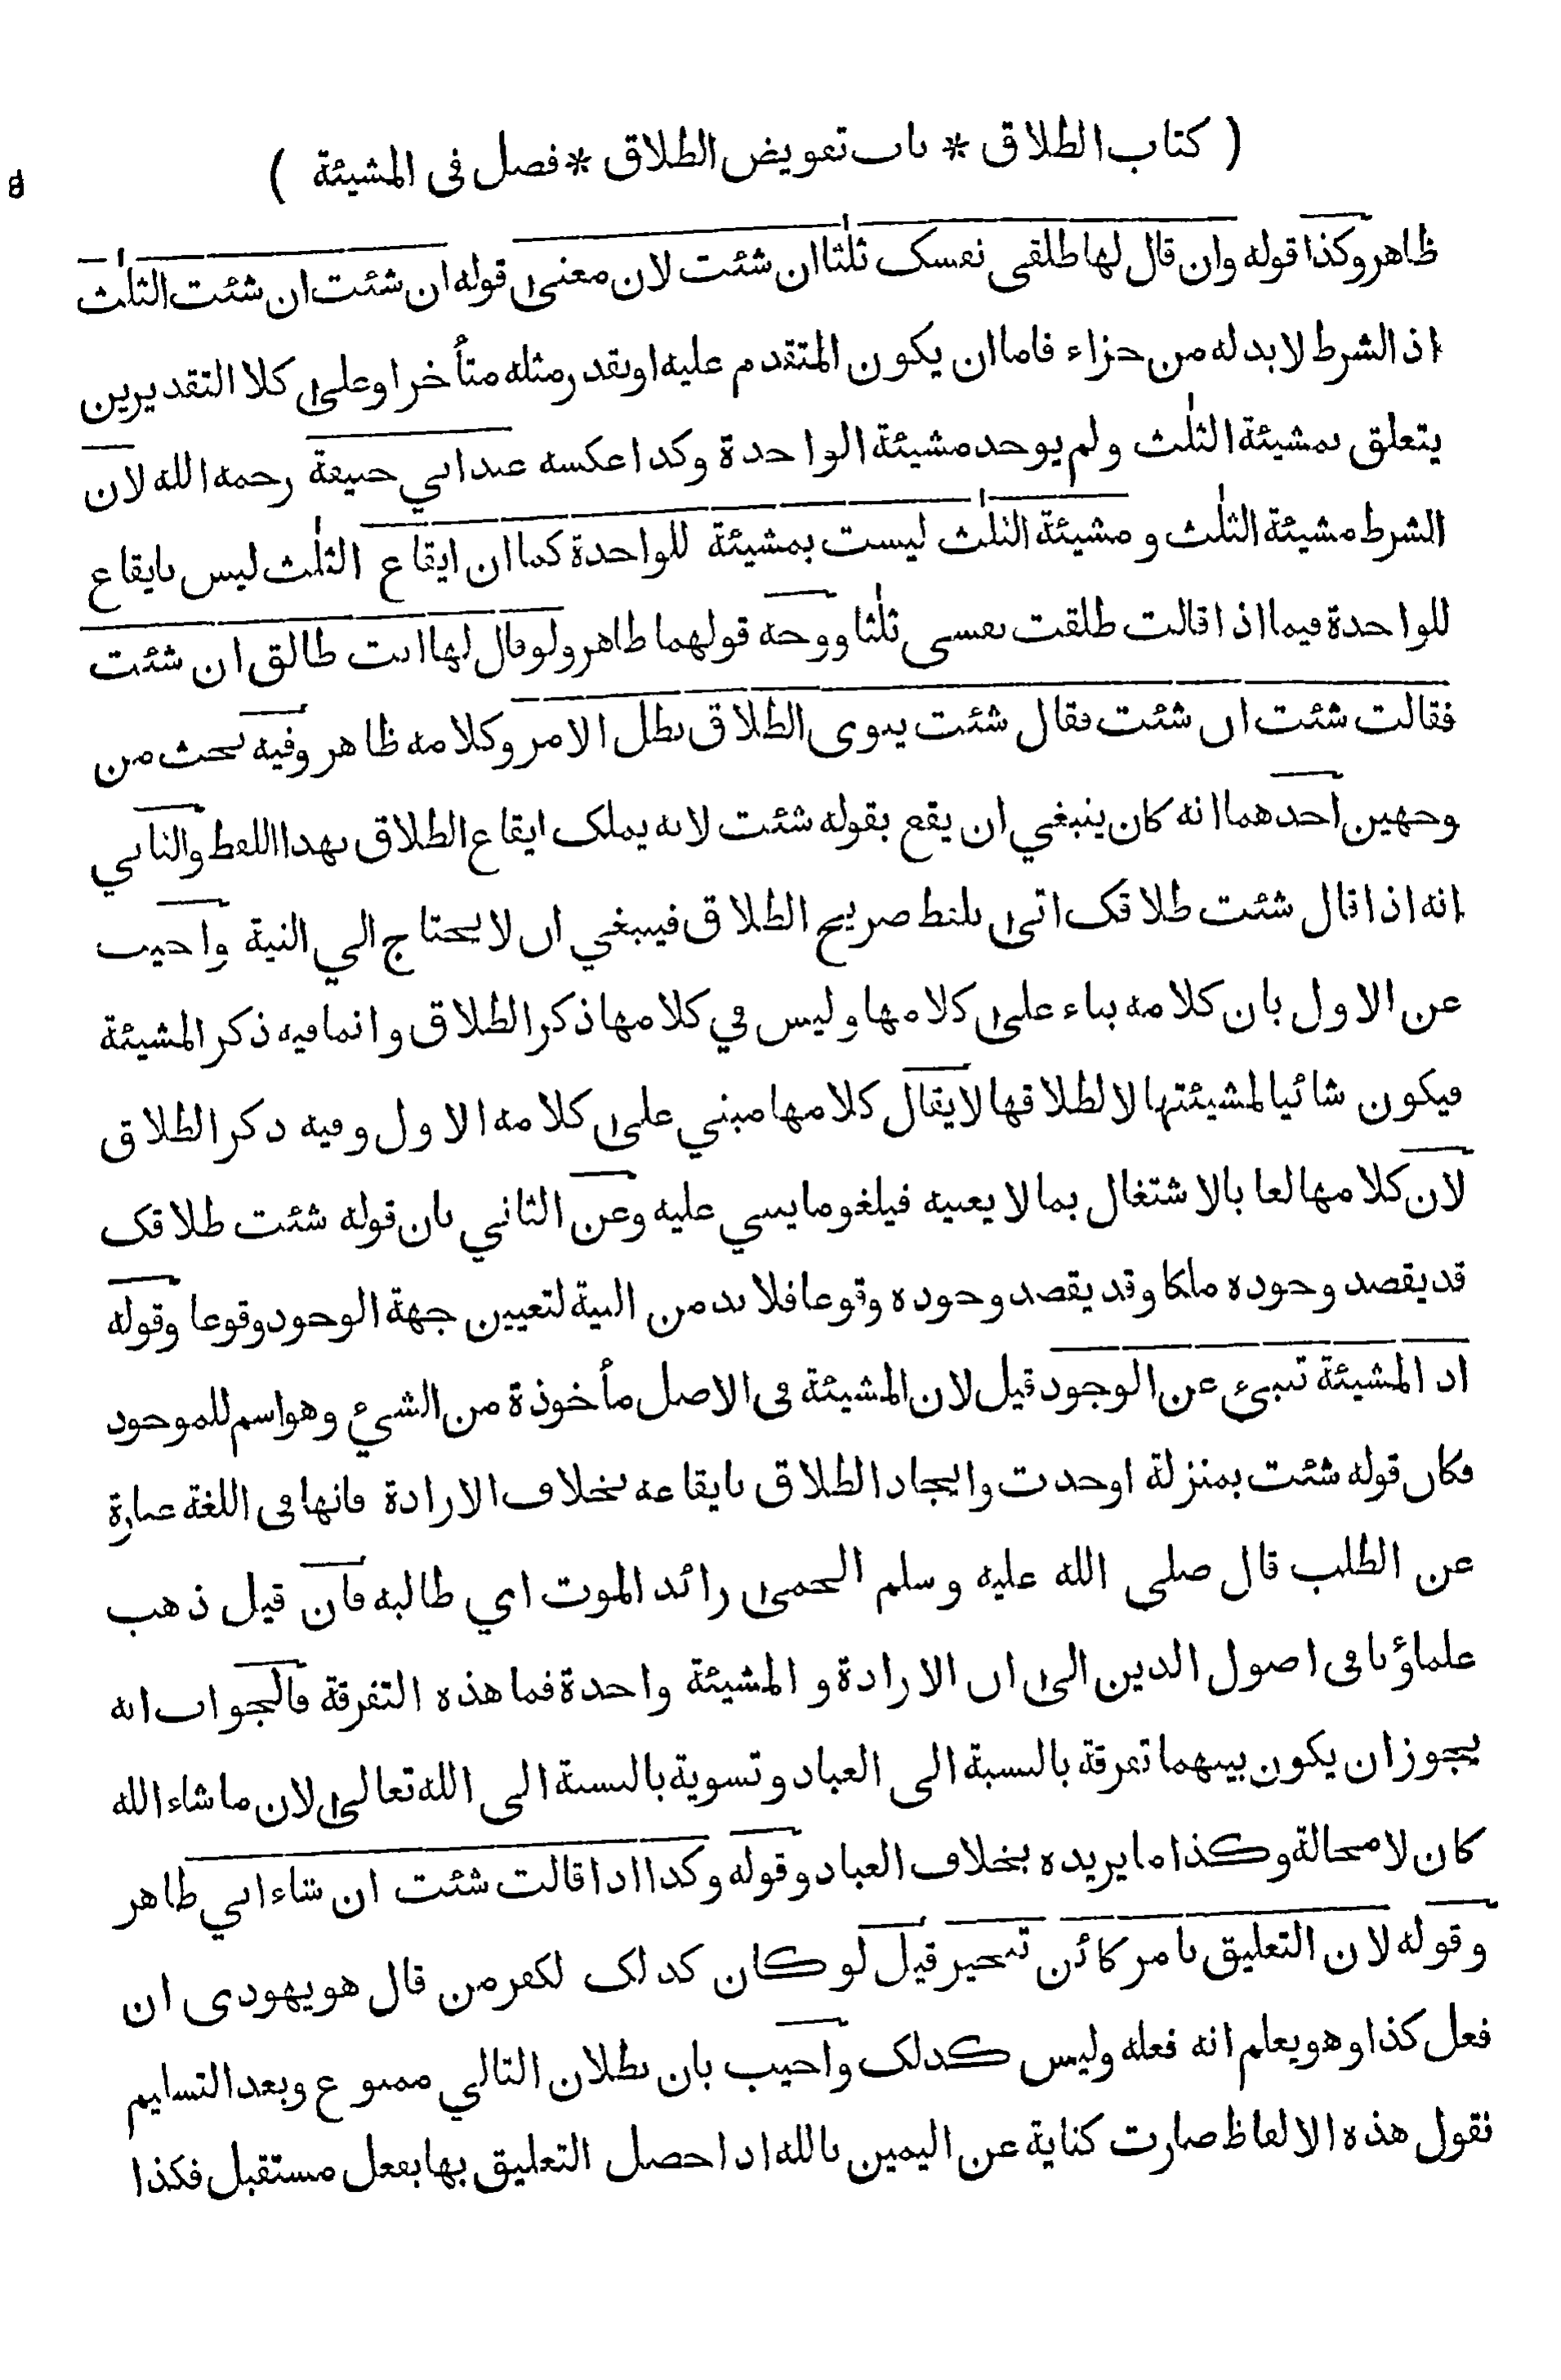 ( كتاب الطلاق * باب تفويض الطلاق * فصل في المشيئة )
ظاهر وكذا قوله وان قال لها طلقي نفسك ثلثا ان شئت لان معنى قوله ان شئت ان شئت الثلث
اذ الشرط لا بد له من جزاء فاما ان يكون المتقدم عليه او يقدر مثله متأخرا وعلى كلا التقديرين
يتعلق بمشيئة الثلث ولم يوجد مشيئة الواحدة وكذا عكسه عند ابي حنيفة رحمه الله لان
الشرط مشيئة الثلث و مشيئة الثلث ليست بمشيئة للواحدة كما ان ايقاع الثلث ليس بايقاع
للواحدة فيما اذا قالت طلقت نفسي ثلثا ووجه قولهما ظاهر ولو قال لها انت طالق ان شئت
فقالت شئت ان شئت فقال شئت ينوى الطلاق بطل الامر وكلامه ظاهر وفيه بحث من
وجهين احدهما انه كان ينبغي ان يقع بقوله شئت لانه يملك ايقاع الطلاق بهذا اللفظ والثاني
انه اذا قال شئت طلاقك اتى بلفظ صريح الطلاق فينبغي ان لا يحتاج الي النية واجيب
عن الاول بان كلامه بناء على كلامها وليس في كلامها ذكر الطلاق وانما فيه ذكر المشيئة
فيكون شائيا لمشيئتها لا لطلاقها لا يقال كلامها مبني على كلامه الاول وفيه ذكر الطلاق
لان كلامها لغا بالاشتغال بما لا يعنيه فيلغو ما يبني عليه وعن الثاني بان قوله شئت طلاقك
قد يقصد وجوده ملكا وقد يقصد وجوده وقوعا فلا بد من النية لتعيين جهة الوجود وقوعا وقوله
اذ المشيئة تنبئ عن الوجود قيل لان المشيئة في الاصل مأخوذة من الشيء وهو اسم للموجود
فكان قوله شئت بمنزلة اوجدت وايجاد الطلاق بايقاعه بخلاف الارادة فانها في اللغة عبارة
عن الطلب قال صلى الله عليه وسلم الحمى رائد الموت اي طالبه فان قيل ذهب
علماؤنا في اصول الدين الى ان الارادة و المشيئة واحدة فما هذه التفرقة فالجواب انه
يجوز ان يكون بينهما تفرقة بالنسبة الى العباد وتسوية بالنسبة الى الله تعالى لان ما شاء الله
كان لا محالة وكذا ما يريده بخلاف العباد وقوله وكذا اذا قالت شئت ان شاء ابي ظاهر
وقوله لان التعليق بامر كائن تنجيز قيل لو كان كذلك لكفر من قال هو يهودى ان
فعل كذا وهو يعلم انه فعله وليس كذلك واجيب بان بطلان التالي ممنوع وبعد التسليم
نقول هذه الالفاظ صارت كناية عن اليمين بالله اذا حصل التعليق بها بفعل مستقبل فكذا